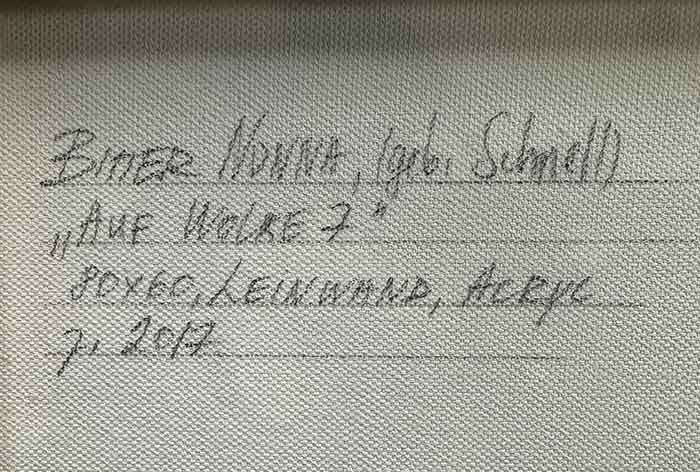 BITTER NONNA, (geb. Schnell)
„AUF WOLKE 7"
80X60, LEINWAND, ACRYL
J. 2017